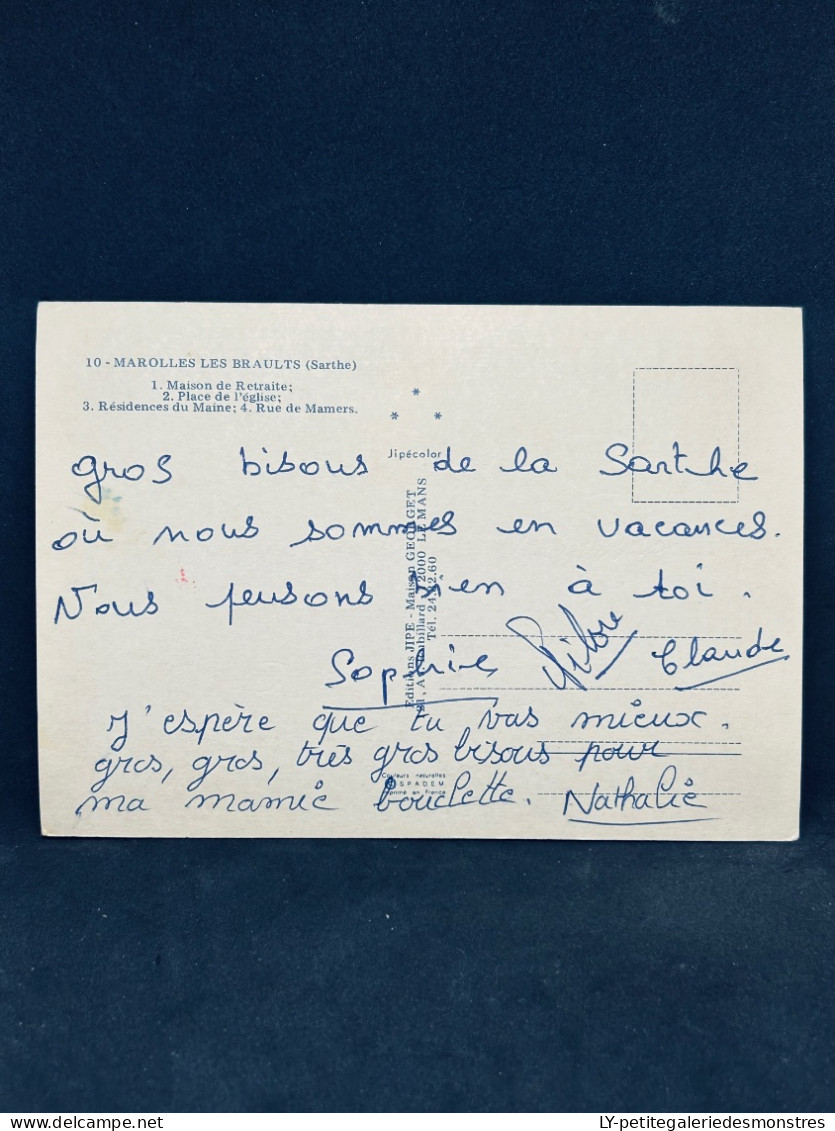 10 - MAROLLES LES BRAULTS (Sarthe)
1. Maison de Retraite;
2. Place de l'église;
3. Résidences du Maine; 4. Rue de Mamers.
Jipécolor
gros bisous de la Sarthe
où nous sommes en vacances.
Nous pensons bien à toi.
Sophie Claude
J'espère que tu vas mieux.
gros, gros, très gros bisous pour
ma mamie bouclette. Nathalie
Editions JIPE - Maison GEORGET
72000 LE MANS
Tél.
Couleurs naturelles
SPADEM
Imprimé en France
delcampe.net
LY-petitegaleriedesmonstres